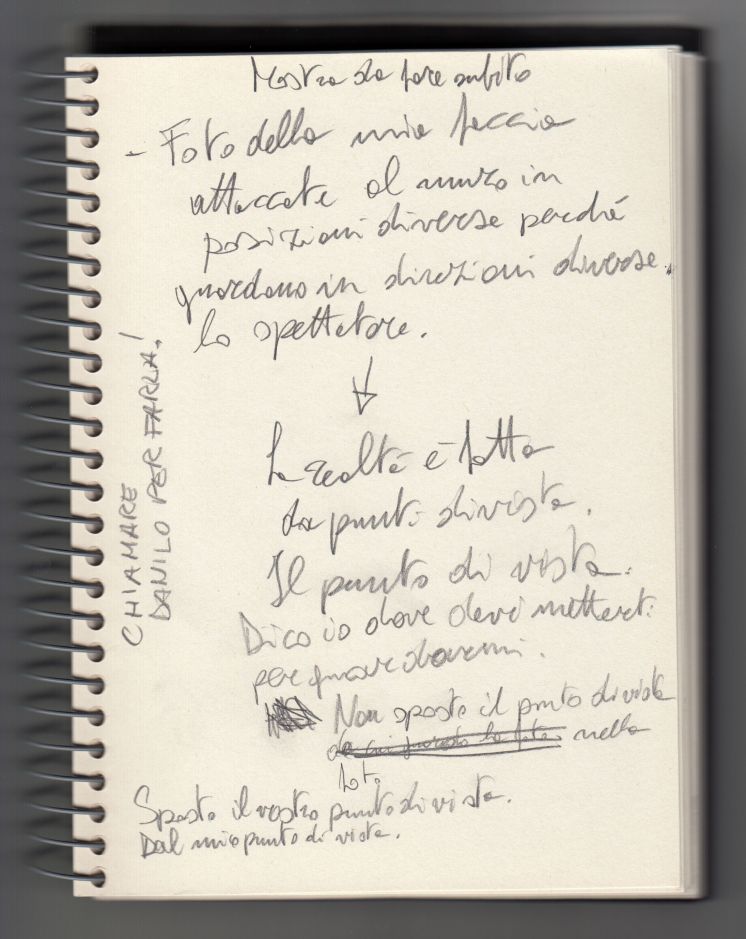 Mostra da fare subito
- Foto della mia faccia
attaccate al muro in
posizioni diverse perché
guardano in direzioni diverse
lo spettatore.
↓
La realtà è fatta
da punti di vista.
Il punto di vista.
Dico io dove devi metterti
per guardarmi.
Non sposto il punto di vista
nella
foto
Sposto il vostro punto di vista.
Dal mio punto di vista.
CHIAMARE
DANILO PER FARLA!